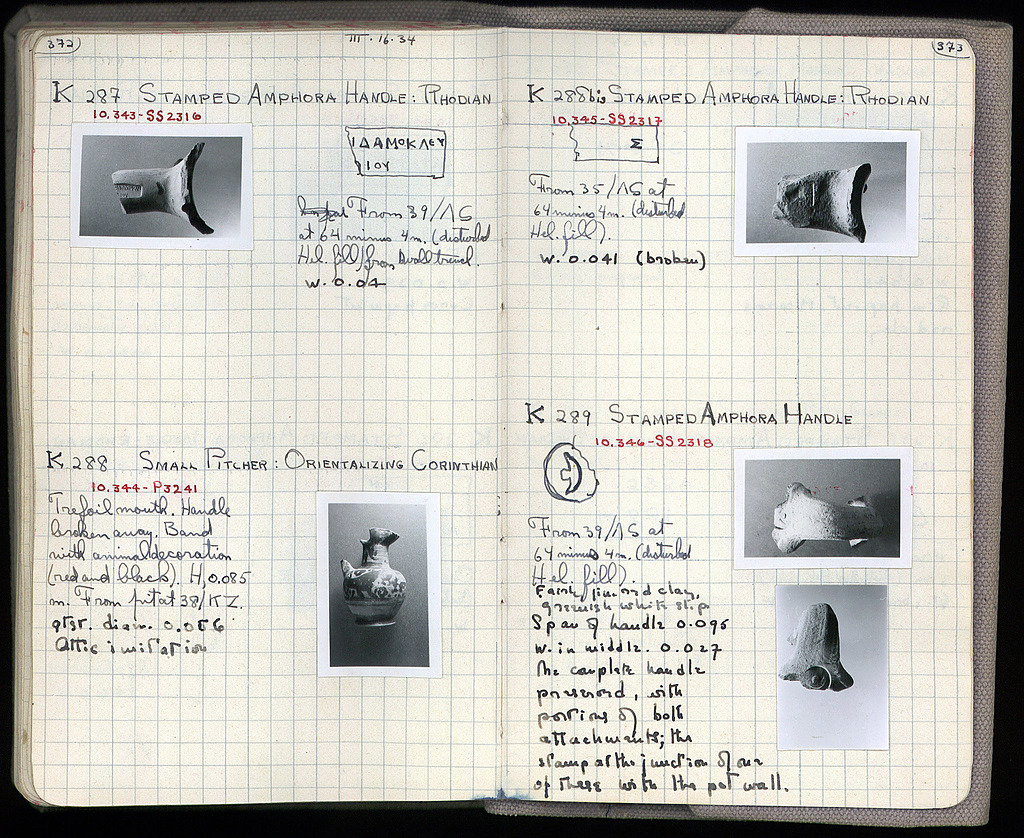 372
III·16·34
K 287 STAMPED AMPHORA HANDLE: RHODIAN
10.343-SS2316
ΙΔΑΜΟΚΛΕΥ
ΙΟΥ
From 39/ΛΣ
at 64 minus 4m. (disturbed
Hel. fill) from wall trench.
W. 0.04
K 288 SMALL PITCHER: ORIENTALIZING CORINTHIAN
10.344-P3241
Trefoil mouth. Handle
broken away. Band
with animal decoration
(red and black). H. 0.085
m. From pit at 38/ΚΖ.
gtst. diam. 0.056
Attic imitation
373
K 288bis STAMPED AMPHORA HANDLE: RHODIAN
10.345-SS2317
Σ
From 35/ΛΣ at
64 minus 4m. (disturbed
Hel. fill).
W. 0.041 (broken)
K 289 STAMPED AMPHORA HANDLE
10.346-SS2318
From 39/ΛΣ at
64 minus 4m. (disturbed
Hel. fill).
red clay,
greenish white slip
Span of handle 0.095
W. in middle. 0.027
The complete handle
preserved, with
portions of both
attachments; the
stamp at the junction of one
of these with the pot wall.